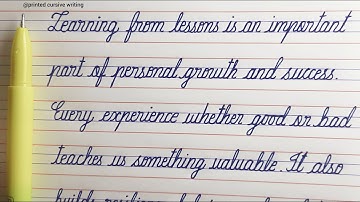 @printed cursive writing
Learning from lessons is an important
part of personal growth and success.
Every experience whether good or bad
teaches us something valuable. It also
builds